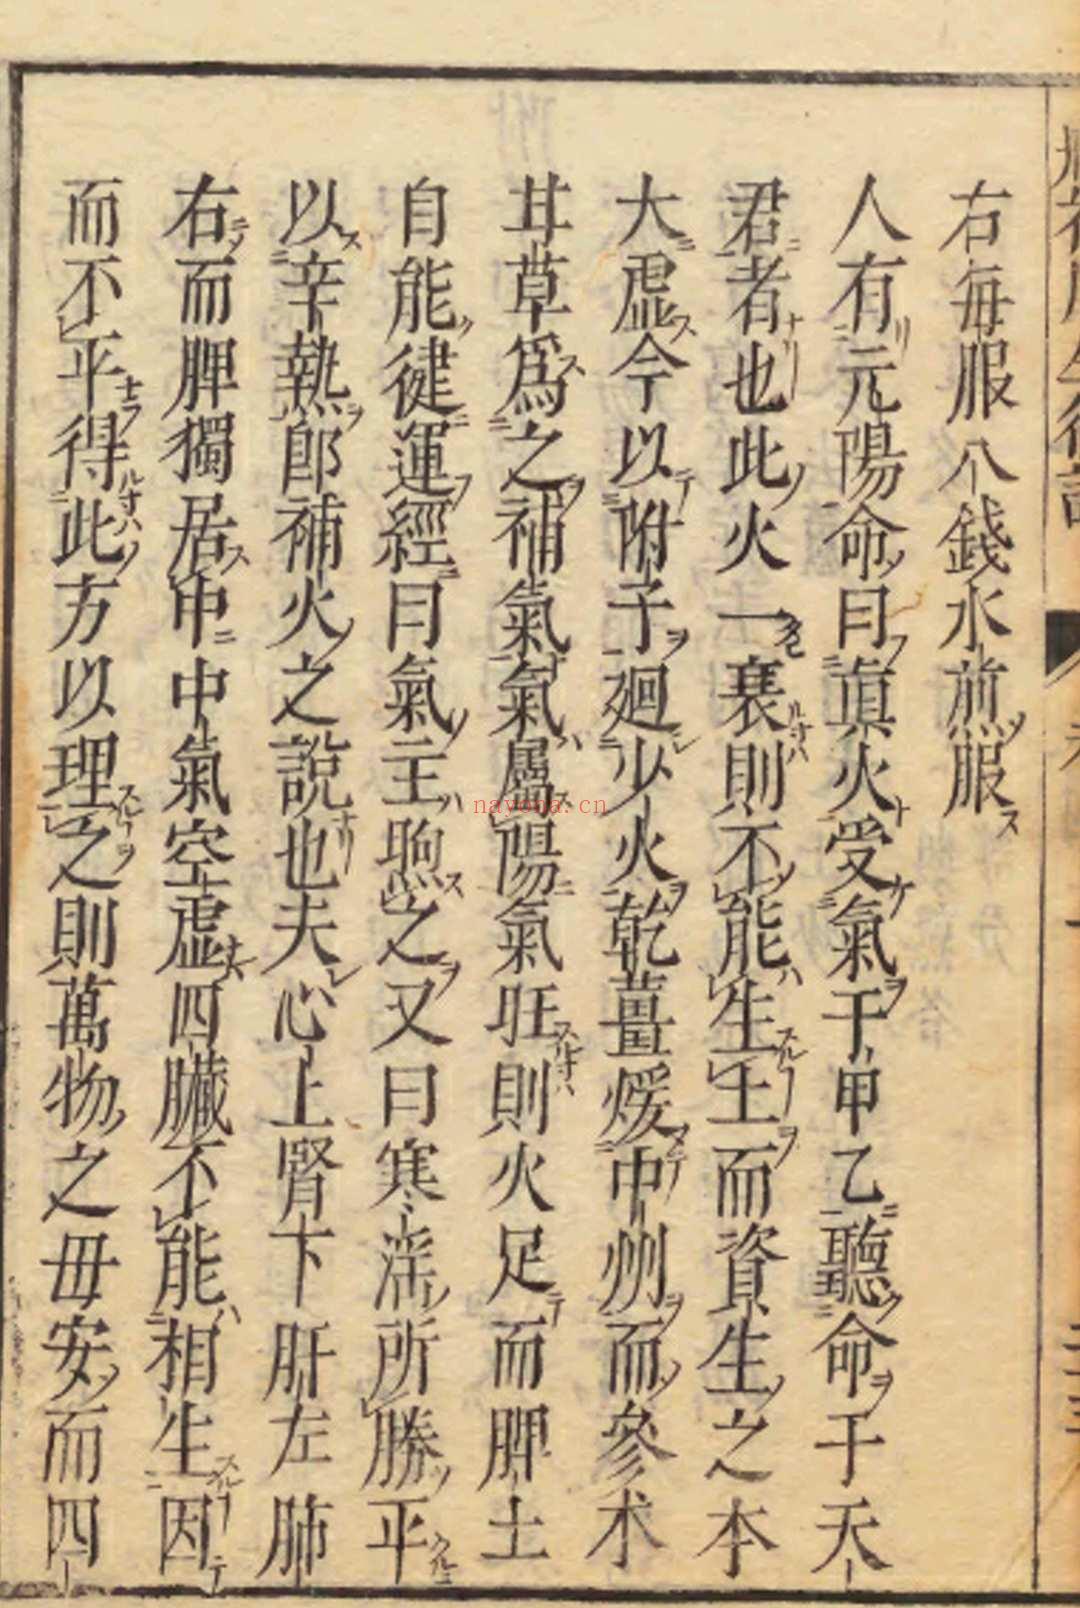 右毎服八錢水煎服
人有元陽命曰眞火受氣于甲乙聽命于天
君者也此火一衰則不能生土而資生之本
大虛今以附子廻少火乾薑煖中州而參术
甘草爲之補氣氣屬陽氣旺則火足而脾土
自能徤運經曰氣主喣之又曰寒淫所勝平
以辛熱郎補火之說也夫心上腎下肝左肺
右而脾獨居中中氣空虛四臟不能相生因
而不平得此方以理之則萬物之毋安而四
nayona.cn